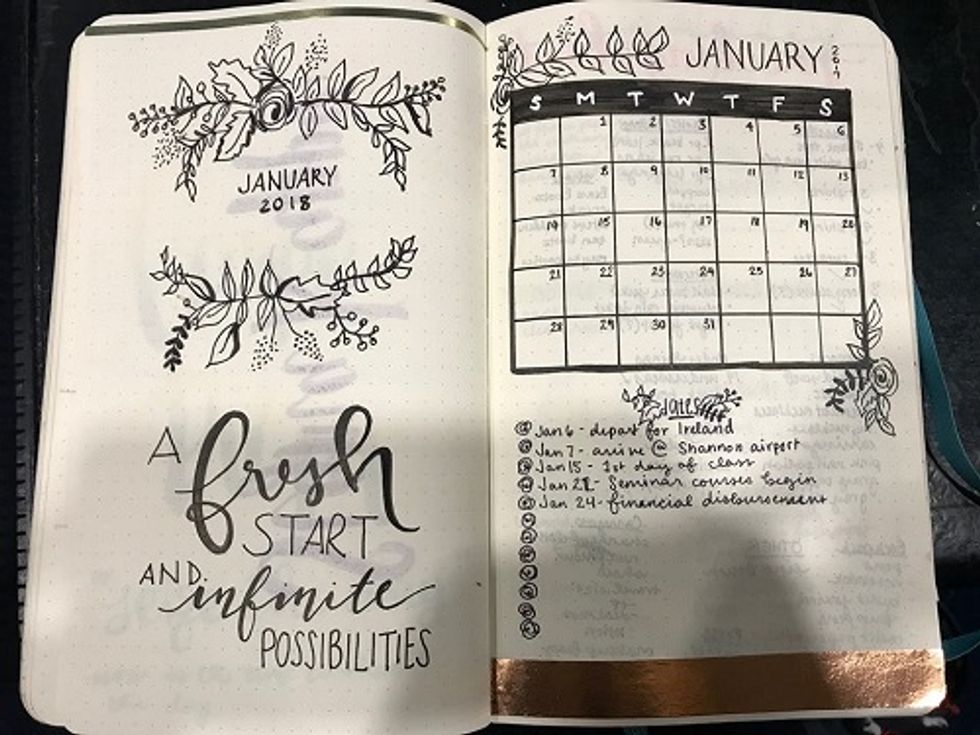 JANUARY
2018
A fresh
START
AND infinite
POSSIBILITIES
JANUARY
S M T W T F S
1 2 3 4 5 6
7 8 9 10 11 12 13
14 15 16 17 18 19 20
21 22 23 24 25 26 27
28 29 30 31
dates
Jan 6 - depart for Ireland
Jan 7 - arrive @ Shannon airport
Jan 15 - 1st day of class
Jan - Seminar courses begin
Jan 24 - financial disbursement